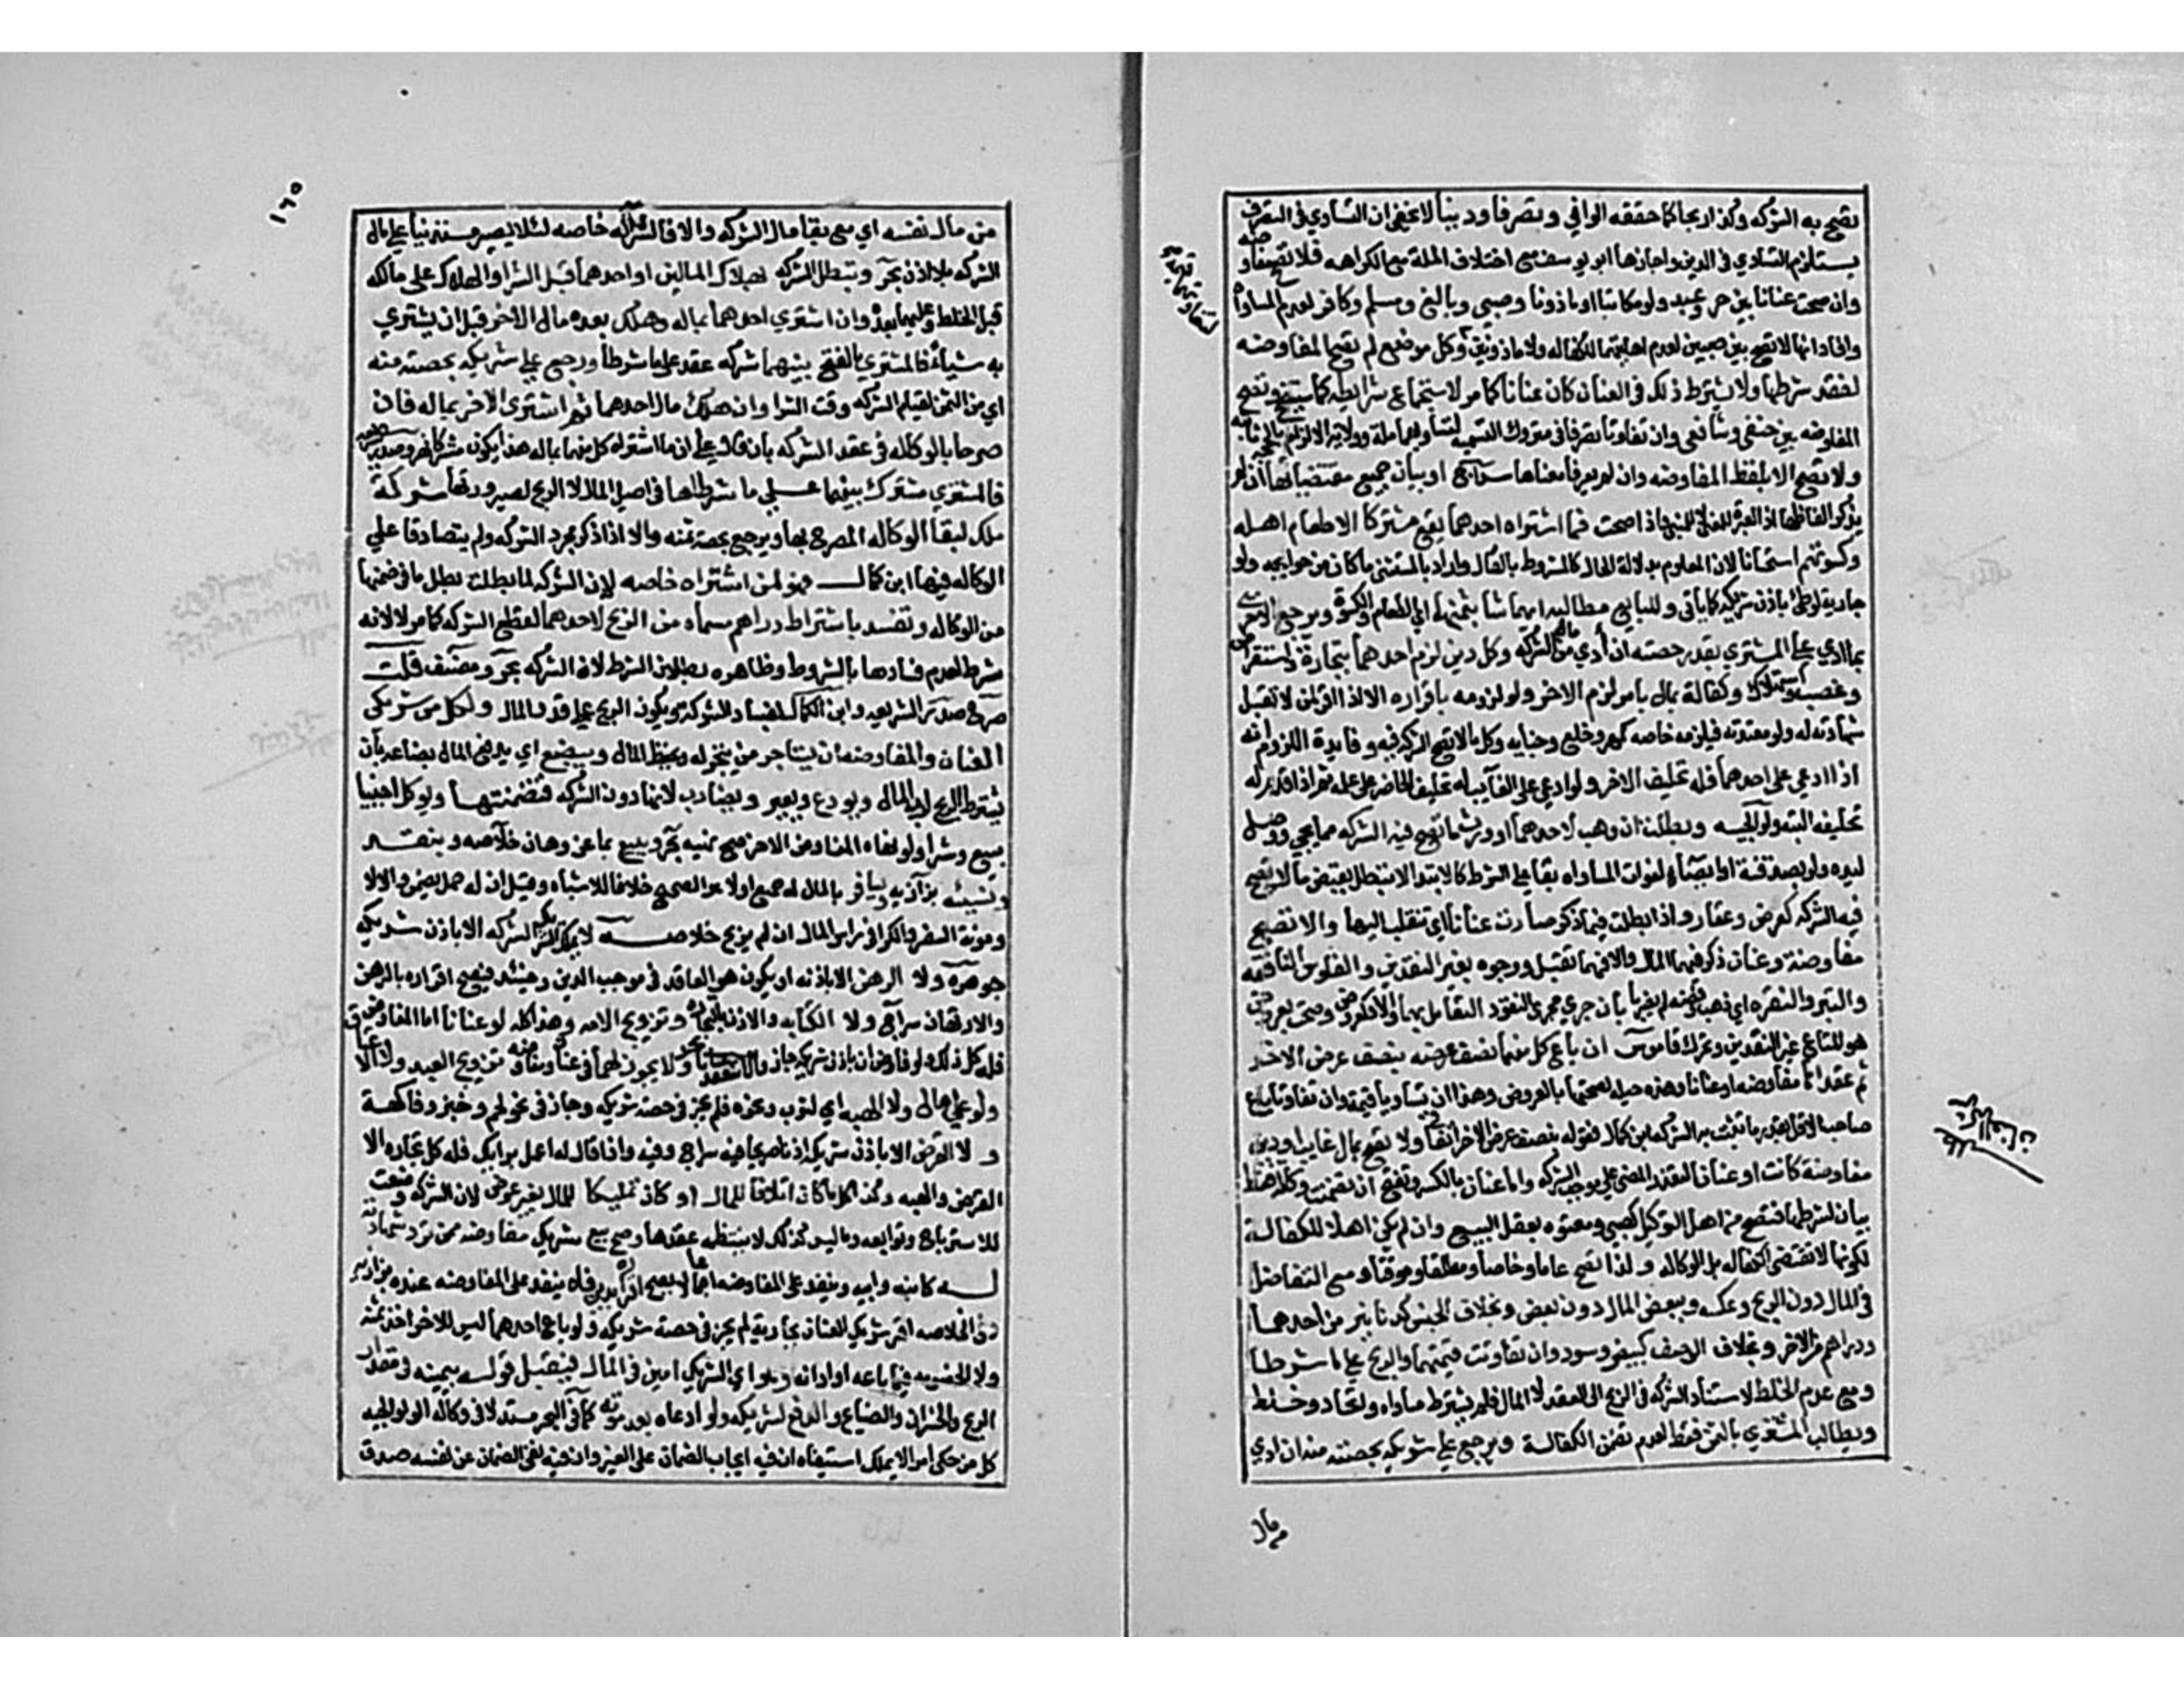 تصح به الشركه وكذا ربحا كما حققه الواني وتصرفا ودينا لا يخفى ان التساوي في التصرف
يستلزم التساوي في الدين واجازها ابو يوسف مع اختلاف الملة مع الكراهه فلا تصح مفاوضه
وان صحت عنانا بين حر وعبد ولو مكاتبا او ماذونا وصبي وبالغ ومسلم وكافر لعدم المساواه
وافاد انها لا تصح بين صبيين لعدم اهليتهما للكفاله ولا ماذونين وكل موضع لم تصح المفاوضه
لفقد شرطها ولا يشترط ذلك في العنان كان عنانا كما مر لاستجماع شرايطه كما سيتضح وتصح
المفاوضه بين حنفي وشافعي وان تفاوتا تصرفا في متروك التسميه لتساويهما ملة وولاية الالزام بالحجة ثابته
ولا تصح الا بلفظ المفاوضه وان لم يعرفا معناها سراج او بيان جميع مقتضياتها ان لم
يذكر لفظها اذ العبرة للمعنى لا للمبنى واذا صحت فما اشتراه احدهما يقع مشتركا الا طعام اهله
وكسوتهم استحسانا لان المعلوم بدلالة الحال كالمشروط بالمقال واراد بالمستثنى ما كان من حوايجه ولو
جارية لوطئ باذن شريكه كما ياتي وللبايع مطالبة ايهما شا بثمنهما اي الطعام والكسوة ويرجع الاخر
بما ادي على المشتري بقدر حصته ان أدي من مال الشركه وكل دين لزم احدهما بتجارة واستقراض
وغصب واستهلاك وكفالة بمال بامره لزم الاخر ولو لزومه باقراره الا اذا اقر لمن لا تقبل
شهادته له ولو معتدته فيلزمه خاصه كمهر وخلع وجنايه وكل ما لا تصح الشركه فيه وفايدة اللزوم انه
اذا ادعي على احدهما فله تحليف الاخر ولو ادعي على الغايب له تحليف الحاضر على علمه ثم اذا قدم له
تحليفه البته ولوالجيه وبطلت ان وهب لاحدهما او ورث ما تصح فيه الشركه مما يجي ووصل
ليده ولو بصدقة او ايصاء لفوات المساواه بقا وهي شرط كالابتدا لا تبطل بقبض ما لا تصح
فيه الشركه كعرض وعقار واذا بطلت بما ذكر صارت عنانا اي تنقلب اليها ولا تصح
مفاوضة وعنان ذكر فيهما المال والا فهما تقبل ووجوه بغير النقدين والفلوس النافقه
والتبر والنقره اي ذهب وفضه لم يضربا ان جري مجري النقود التعامل بهما والا فكعروض وصحت بعرض
هو المتاع غير النقدين ويحرك قاموس ان باع كل منهما نصف عرضه بنصف عرض الاخر
ثم عقداها مفاوضه او عنانا وهذه حيله لصحتها بالعروض وهذا ان تساويا قيمة وان تفاوتا باع
صاحب الاقل بقدر ما تثبت به الشركه ابن كمال فقوله بنصف عرض الاخر اتفاقي ولا تصح بمال غايب او دين
مفاوضة كانت او عنانا لتعذر المضي على موجب الشركه واما عنان بالكسر وتفتح ان تضمنت وكالة فقط
بيان لشرطها فتصح من اهل التوكيل كصبي ومعتوه يعقل البيع وان لم يكن اهلا للكفالة
لكونها لا تقتضي الكفاله بل الوكاله ولذا تصح عاما وخاصا ومطلقا وموقتا ومع التفاضل
في المال دون الربح وعكسه وببعض المال دون بعض وبخلاف الجنس كدنانير من احدهما
ودراهم من الاخر وبخلاف الوصف كبيض وسود وان تفاوتت قيمتهما والربح على ما شرطا
ومع عدم الخلط لاستناد الشركه في الربح الى العقد لا المال فلم يشترط مساواه واتحاد وخلط
ويطالب المشتري بالثمن فقط لعدم تضمن الكفالة ويرجع على شريكه بحصته منه ان ادي
من مال
١٦٥
من مال نفسه اي مع بقا مال الشركه والا فالشراء له خاصه لئلا يصير مستدينا على مال
الشركه بلا اذن بحر وتبطل الشركه بهلاك المالين او احدهما قبل الشرا والهلاك على مالكه
قبل الخلط وعليهما بعده وان اشتري احدهما بماله وهلك بعده مال الاخر قبل ان يشتري
به شيأ فالمشتري بالفتح بينهما شركه عقد على ما شرطا ورجع على شريكه بحصته منه
اي من الثمن لقيام الشركه وقت الشرا وان هلك مال احدهما ثم اشتري الاخر بماله فان
صرحا بالوكاله في عقد الشركه بان قالا على ان ما اشتراه كل منهما بماله هذا يكون مشتركا نهر وصدر الشريعه
فالمشتري مشترك بينهما على ما شرطا في اصل المال لا الربح لصيرورتها شركة
ملك لبقا الوكاله المصرح بها ويرجع بحصة ثمنه والا اذا ذكر مجرد الشركه ولم يتصادقا علي
الوكاله فيها ابن كمال فهو لمن اشتراه خاصه لان الشركه لما بطلت بطل ما في ضمنها
من الوكاله وتفسد باشتراط دراهم مسماه من الربح لاحدهما لقطع الشركه كما مر لا لانه
شرط لعدم فسادها بالشروط وظاهره بطلان الشرط لا الشركه بحر ومصنف قلت
صرح صدر الشريعه وابن الكمال بفساد الشركه ويكون الربح على قدر المال ولكل من شريكي
العنان والمفاوضه ان يستاجر من يتجر له ويحفظ المال ويبضع اي يدفع المال بضاعه بان
يشترط الربح لرب المال ويودع ويعير ويضارب لانها دون الشركه فتضمنتها ويوكل اجنبيا
ببيع وشرا ولو نهاه المفاوض الاخر صح نهيه بحر ويبيع بما عز وهان خلاصه وبنقد
ونسيئه بزازيه ويسافر بالمال له حمل اولا هو الصحيح خلافا للاشباه وقيل ان له حمل يضمن والا لا
ومونة السفر والكرا من راس المال ان لم يربح خلاصه لا يملك الشريك الشركه الا باذن شريكه
جوهره ولا الرهن الا باذنه او يكون هو العاقد في موجب الدين وحينئذ فيصح اقراره بالرهن
والارتهان سراج ولا الكتابه والاذن بالتجاره وتزويج الامه وهذا كله لو عنانا اما المفاوض
فله كل ذلك ولو فاوض ان باذن شريكه جاز والا تنعقد عنانا بحر ولا يجوز لهما في عنان ومفاوضه تزويج العبد ولا الاعتاق
ولو على مال ولا الهبه اي لثوب ونحوه فلم يجز في حصة شريكه وجاز في نحو لحم وخبز وفاكهة
ولا القرض الا باذن شريكه اذنا صريحا فيه سراج وفيه واذا قال له اعمل برايك فله كل تجاره الا
القرض والهبه وكذا كل ما كان اتلافا للمال او كان تمليكا للمال بغير عوض لان الشركه وضعت
للاسترباح وتوابعه وما ليس كذلك لا ينتظمه عقدها وصح بيع شريك مفاوضه ممن ترد شهادته
له كابنه وابيه وينفذ على المفاوضه اجماعا لا يصح اقراره بدين فلا ينفذ على المفاوضه عنده بزازيه
وفي الخلاصه اقر شريك العنان بجارية لم يجز في حصة شريكه ولو باع احدهما ليس للاخر اخذ ثمنه
ولا الخصومه فيما باعه او ادانه وهو اي الشريك امين في المال فيقبل قوله بيمينه في مقدار
الربح والخسران والضياع والدفع لشريكه ولو ادعاه بعد موته كما في البحر مستدلا في وكالة الولوالجيه
كل من حكى امرا لا يملك استينافه ان فيه ايجاب الضمان على الغير وان فيه نفي الضمان عن نفسه صدق